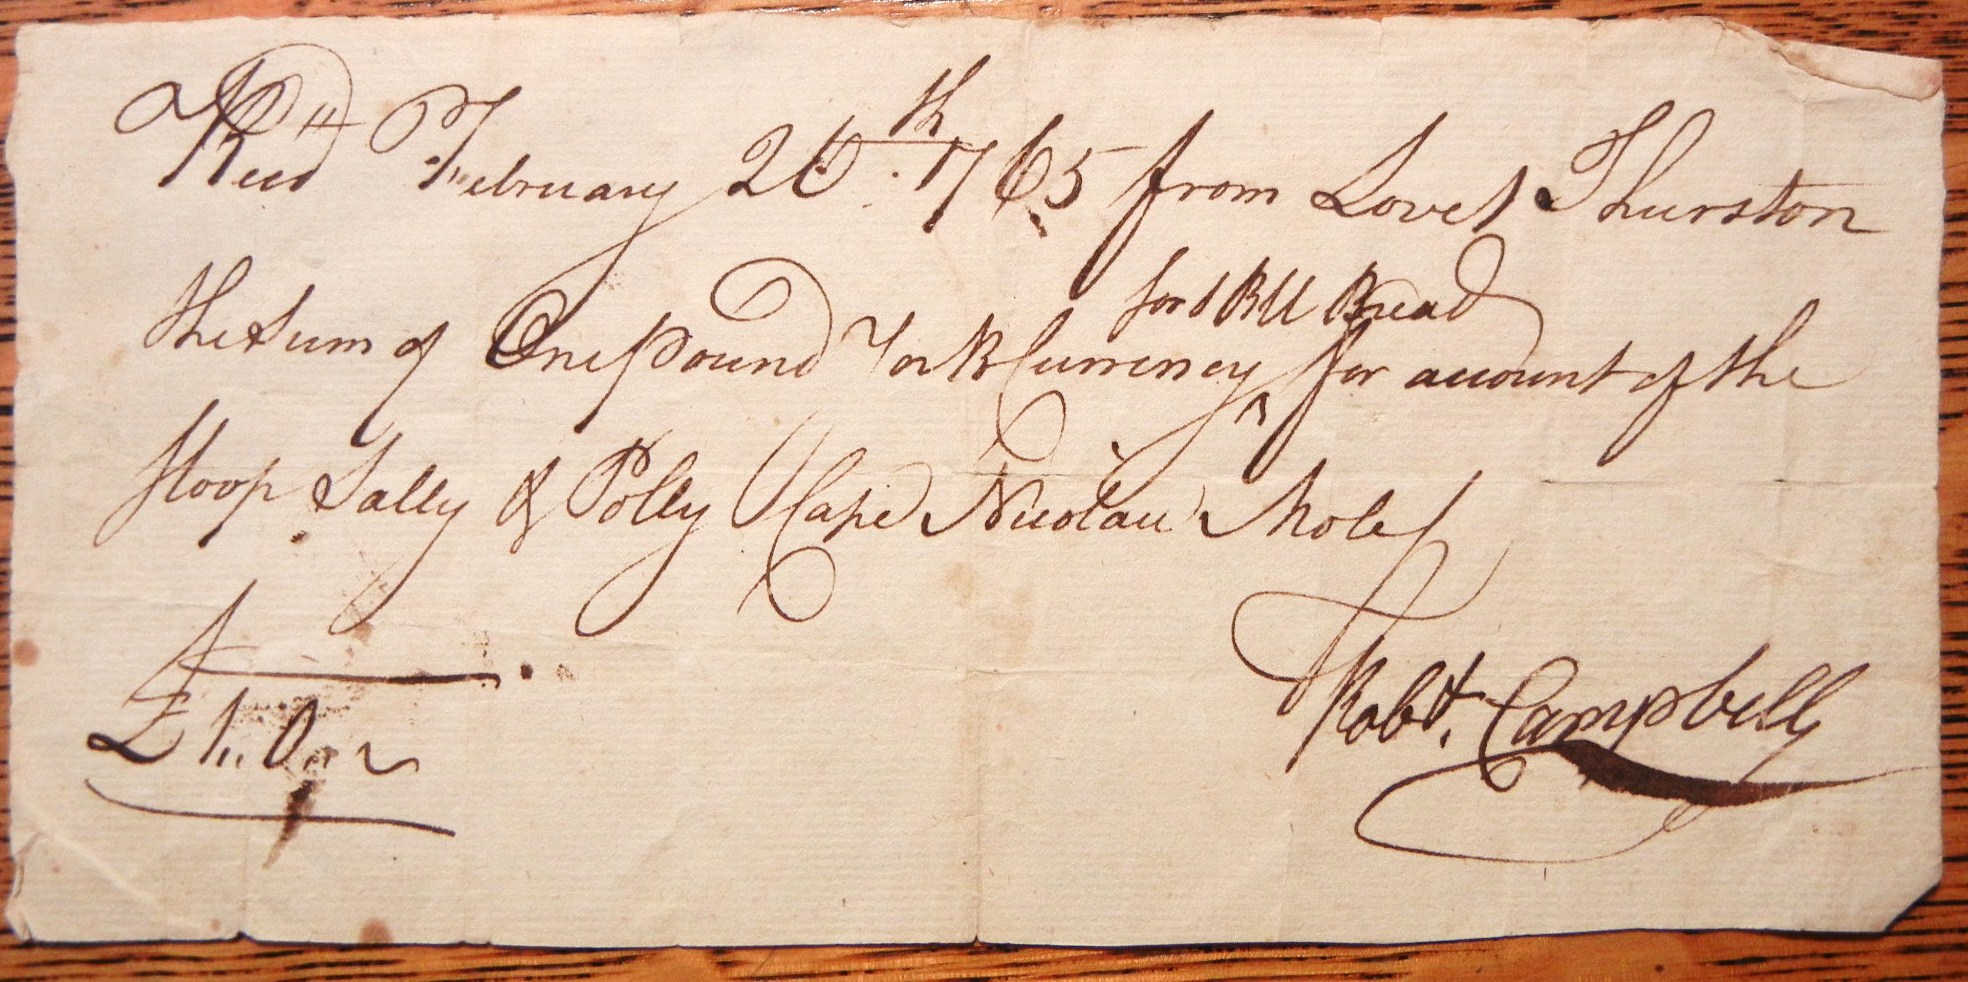 Recd February 26th 1765 from Lovet Thurston
the Sum of One pound York Currency ^ for 1 Bll Bread for account of the
Sloop Sally & Polly Cape Nicolau Mole
£1..0..~
Robt. Campbell